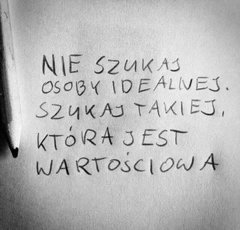 NIE SZUKAJ
OSOBY IDEALNEJ.
SZUKAJ TAKIEJ,
KTÓRA JEST
WARTOŚCIOWA